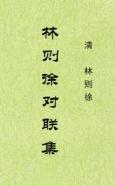 林则徐对联集
清 林则徐